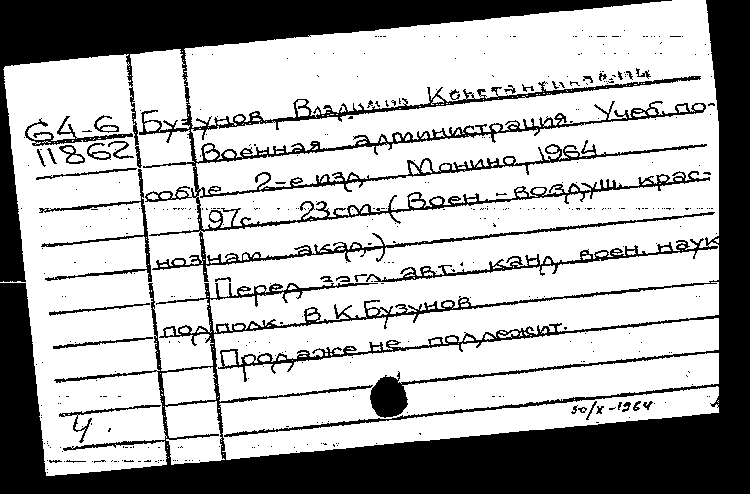 64-6 Бузунов, Владимир Константинович
11862 Военная администрация. Учеб. по-
собие. 2-е изд. Монино, 1964.
97с. 23см. (Воен.-воздуш. крас-
нознам. акад.)
Перед загл. авт.: канд. воен. наук
подполк. В.К.Бузунов
Продаже не подлежит.
Ч.
30/X-1964